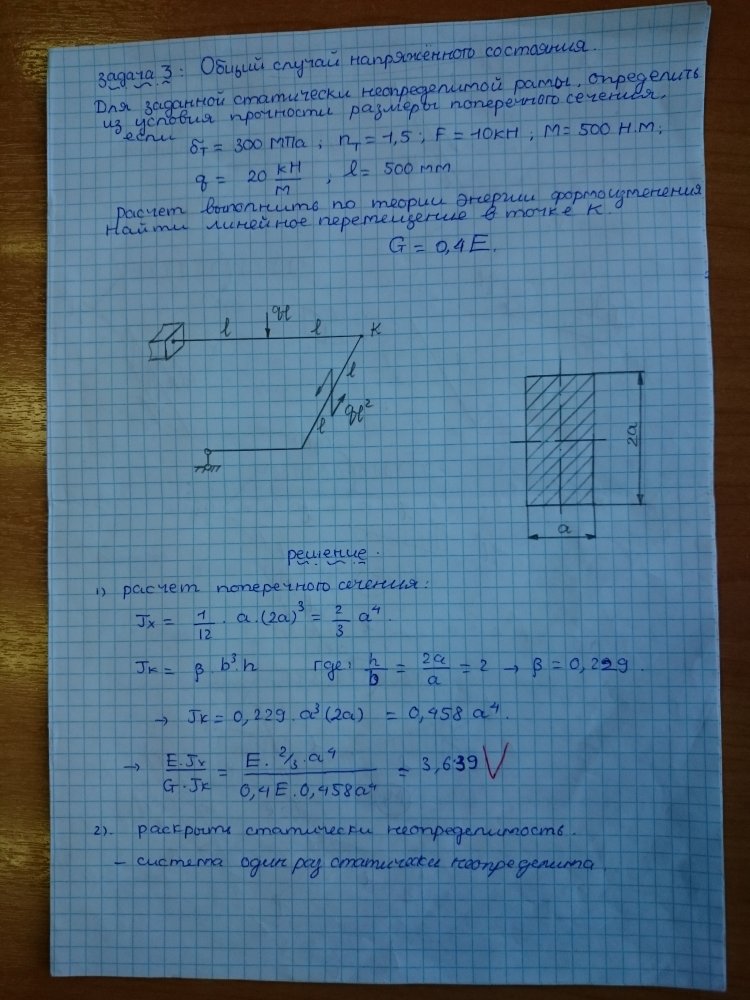 задача 3: Общий случай напряжённого состояния.
Для заданной статически неопределимой рамы, определить
из условия прочности размеры поперечного сечения,
если σт = 300 МПа ; nт = 1,5 ; F = 10кН ; M = 500 Н.м;
q = 20 кН/м , l = 500 мм
расчет выполнить по теории энергии формоизменения
Найти линейное перемещение в точке К.
G = 0,4E.
ql
l
l
K
l
ql²
l
2a
a
решение.
1) расчет поперечного сечения:
Jx = 1/12 · a·(2a)³ = 2/3 a⁴.
Jк = β·b³·h где: h/b = 2a/a = 2 → β = 0,229.
→ Jк = 0,229·a³(2a) = 0,458 a⁴.
→ E·Jx/G·Jк = E·2/3·a⁴/0,4E·0,458a⁴ = 3,639 V
2). раскрыть статически неопределимость.
– система один раз статически неопределима.